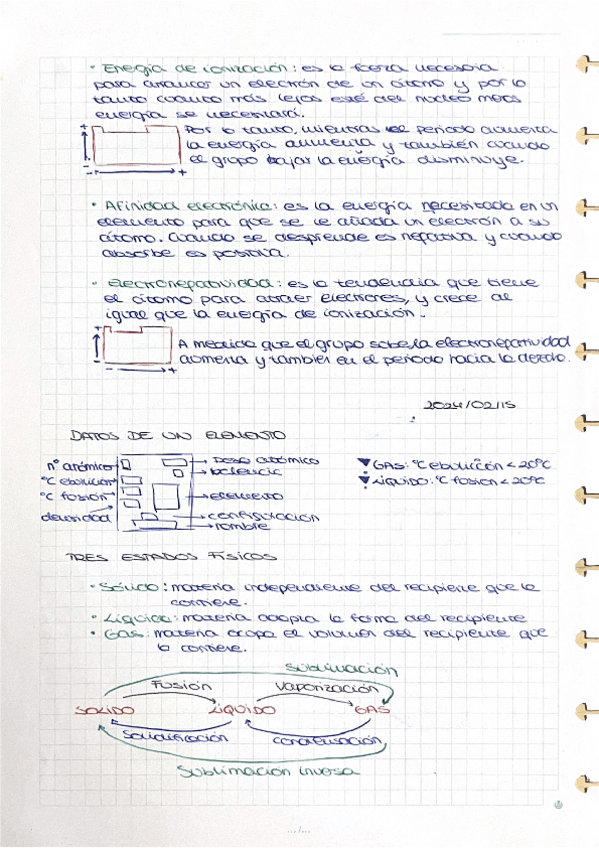 · Energía de ionización: es la fuerza necesaria
para arrancar un electrón de un átomo y por lo
tanto cuanto más lejos esté del núcleo menos
energía se necesitará.
Por lo tanto, mientras el periodo aumenta
la energía aumenta y también cuando
el grupo bajar la energía disminuye.
+
- +
· Afinidad electrónica: es la energía necesitada en un
elemento para que se le añada un electrón a su
átomo. Cuando se desprende es negativa y cuando
absorbe es positiva.
· Electronegatividad: es la tendencia que tiene
el átomo para atraer electrones, y crece al
igual que la energía de ionización.
+
- +
A medida que el grupo sube, la electronegatividad
aumenta y también en el periodo hacia la derecha.
2024/02/15
DATOS DE UN ELEMENTO
nº atómico
ºC ebulición
ºC fusión
densidad
peso atómico
valencia
elemento
configuración
nombre
GAS: ºC ebullición < 20ºC
Líquido: ºC fusión < 20ºC
TRES ESTADOS FÍSICOS
· Sólido: materia independiente del recipiente que le
contiene.
· Líquido: materia adopta la forma del recipiente
· Gas: materia ocupa el volumen del recipiente que
lo contiene.
Sublimación
Fusión Vaporización
SOLIDO LÍQUIDO GAS
Solidificación Condensación
Sublimación inversa
.../...